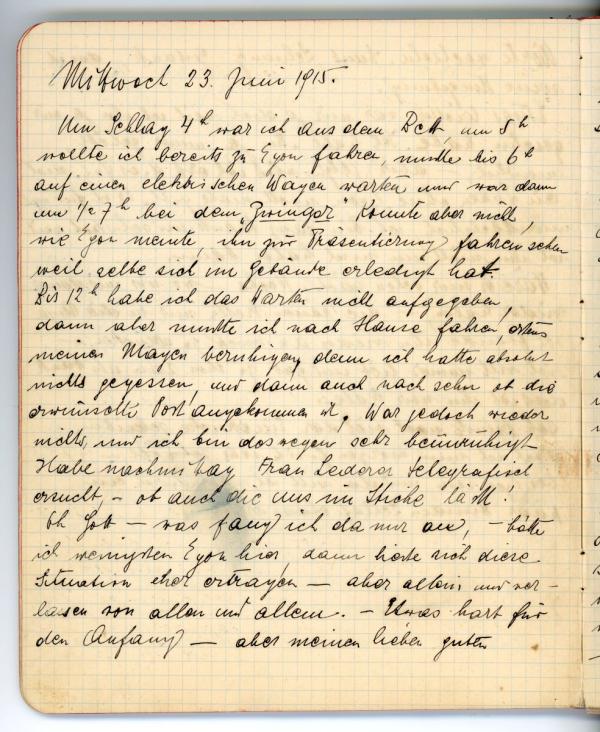 Mittwoch 23. Juni 1915.
Um Schlag 4h war ich aus dem Bett, um 5h
wollte ich bereits zu Egon fahren, mußte bis 6h
auf einen elektrischen Wagen warten und war dann
um 1/2 7h bei dem „Zwinger" konnte aber nicht,
wie Egon meinte, ihn zur Präsentierung fahren sehen
weil selbe sich im Gebäude erledigt hat.
Bis 12h habe ich das Warten nicht aufgegeben,
dann aber mußte ich nach Hause fahren, erstens
meinen Magen beruhigen, denn ich hatte absolut
nichts gegessen, und dann auch nach sehn ob die
erwünschte Post angekommen ist. War jedoch wieder
nichts, und ich bin deswegen sehr beunruhigt
Habe nachmittag Frau Lederer telegrafisch
ersucht, – ob auch die uns im Stiche läßt!
Oh Gott – was fang ich da nur an, – hätte
ich wenigsten Egon hier, dann ließe sich diese
Situation eher ertragen – aber allein und ver-
lassen von allen und allem. – Etwas hart für
den Anfang – aber meinen lieben guten